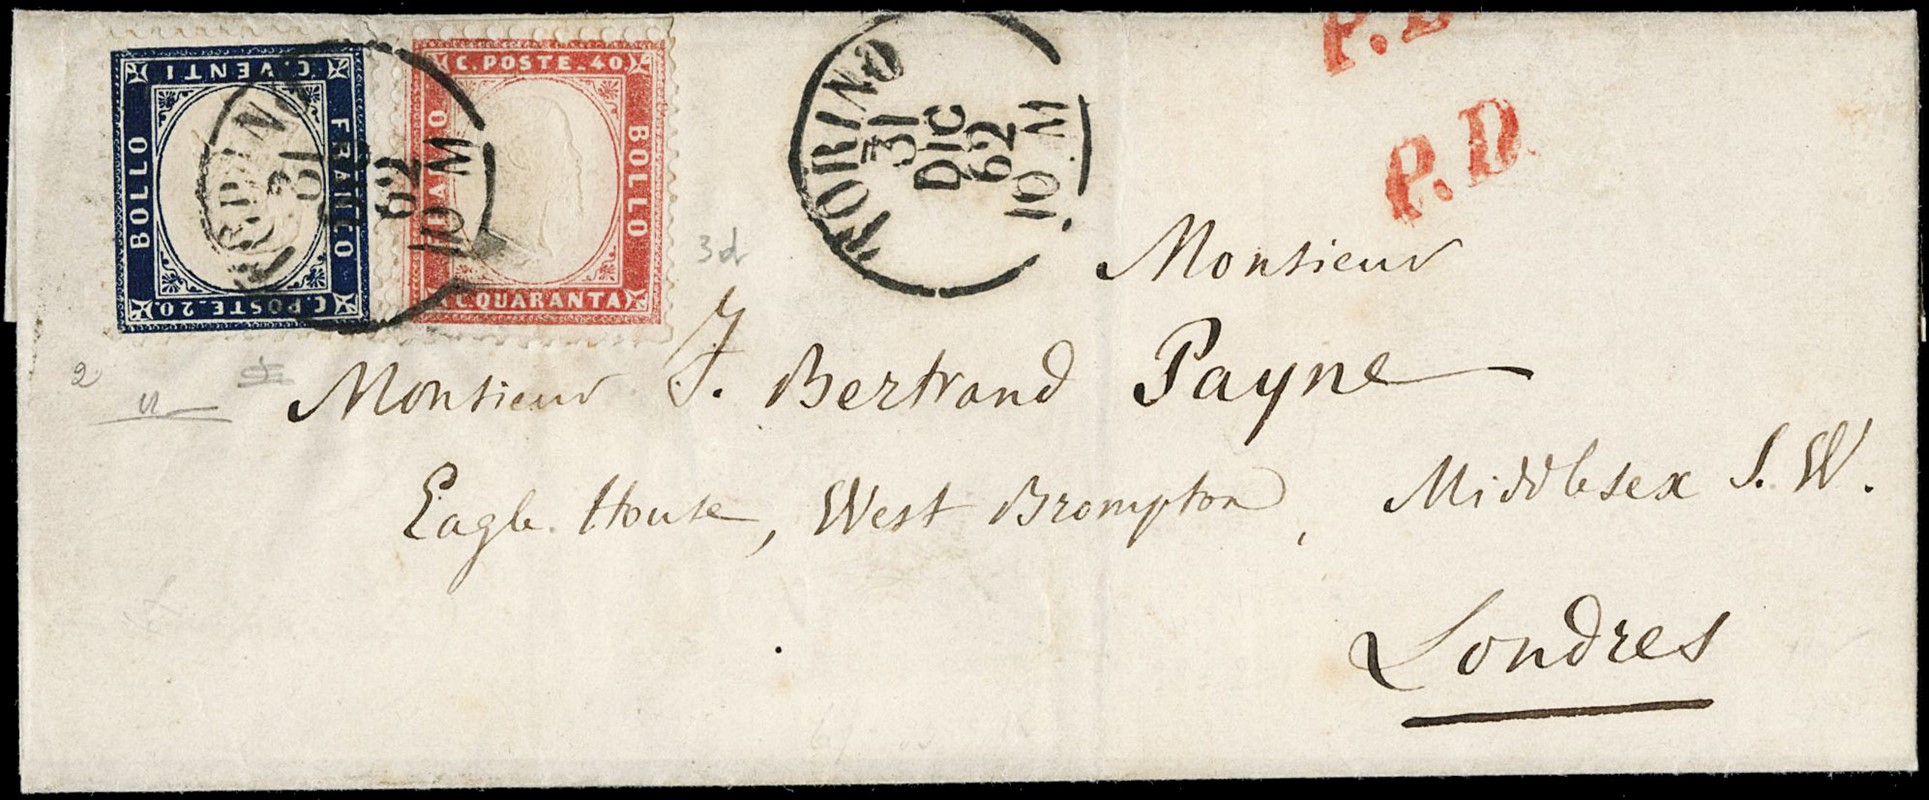 C. POSTE. 20.
BOLLO
FRANCO
C. VENTI
C. POSTE. 40
BOLLO
C. QUARANTA
TORINO
31
62
10 M
TORINO
31
DIC
62
10 M
P.D.
P.D.
3d
2
Monsieur
Monsieur J. Bertrand Payne
Eagle House, West Brompton, Middlesex S. W.
Londres